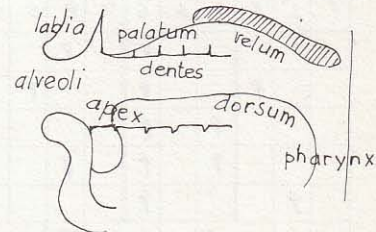 labia
palatum
velum
dentes
alveoli
apex
dorsum
pharynx